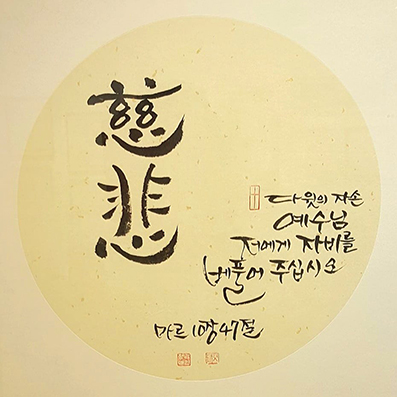 慈悲
다윗의 자손
예수님
저에게 자비를
베풀어 주십시오
마르 10장 47절